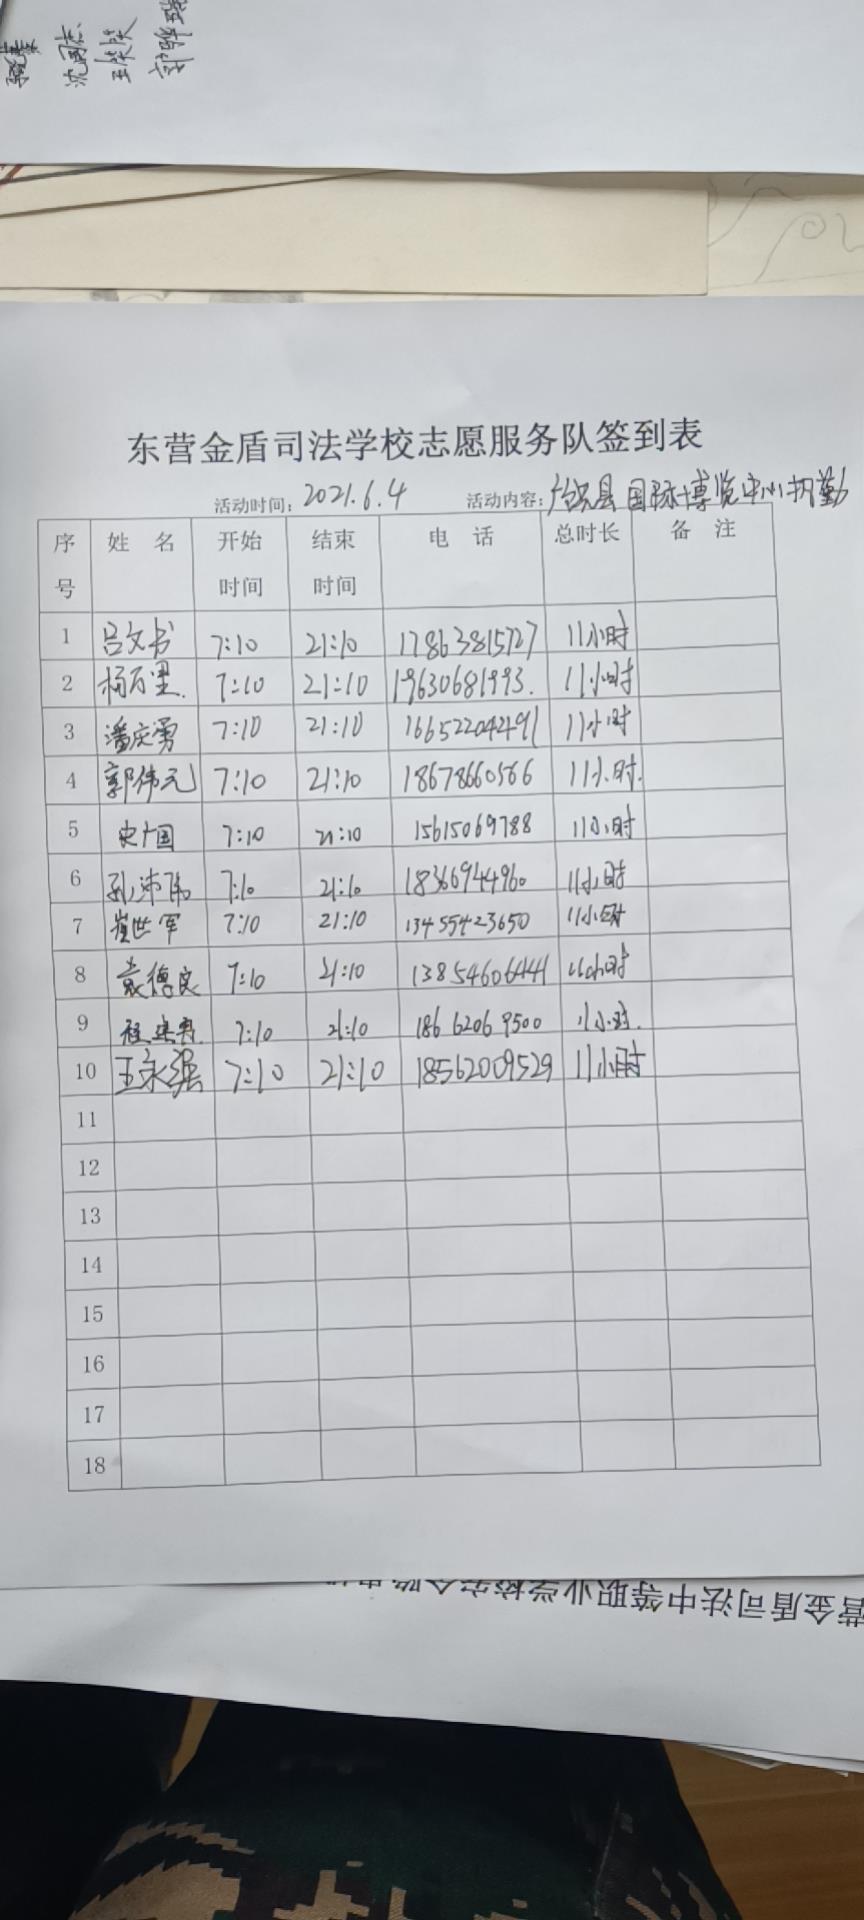 沈国志
东营金盾司法学校志愿服务队签到表
活动时间：2021.6.4 活动内容：广饶县国际博览中心执勤
序号 姓名 开始时间 结束时间 电话 总时长 备注
1 吕文书 7:10 21:10 17863815727 11小时
2 杨百里. 7:10 21:10 19630681993. 11小时
3 潘庆勇 7:10 21:10 166522042491 11小时
4 郭伟元 7:10 21:10 18678660566 11小时.
5 史广国 7:10 21:10 15615069788 11小时
6 孙沛伟 7:10 21:10 18366944960 11小时
7 崔世军 7:10 21:10 13455423650 11小时
8 袁德良 7:10 21:10 13854606441 11小时
9 7:10 21:10 18662069500 11小时.
10 王永强 7:10 21:10 18562009529 11小时
11
12
13
14
15
16
17
18
营金盾司法中等职业学校安全